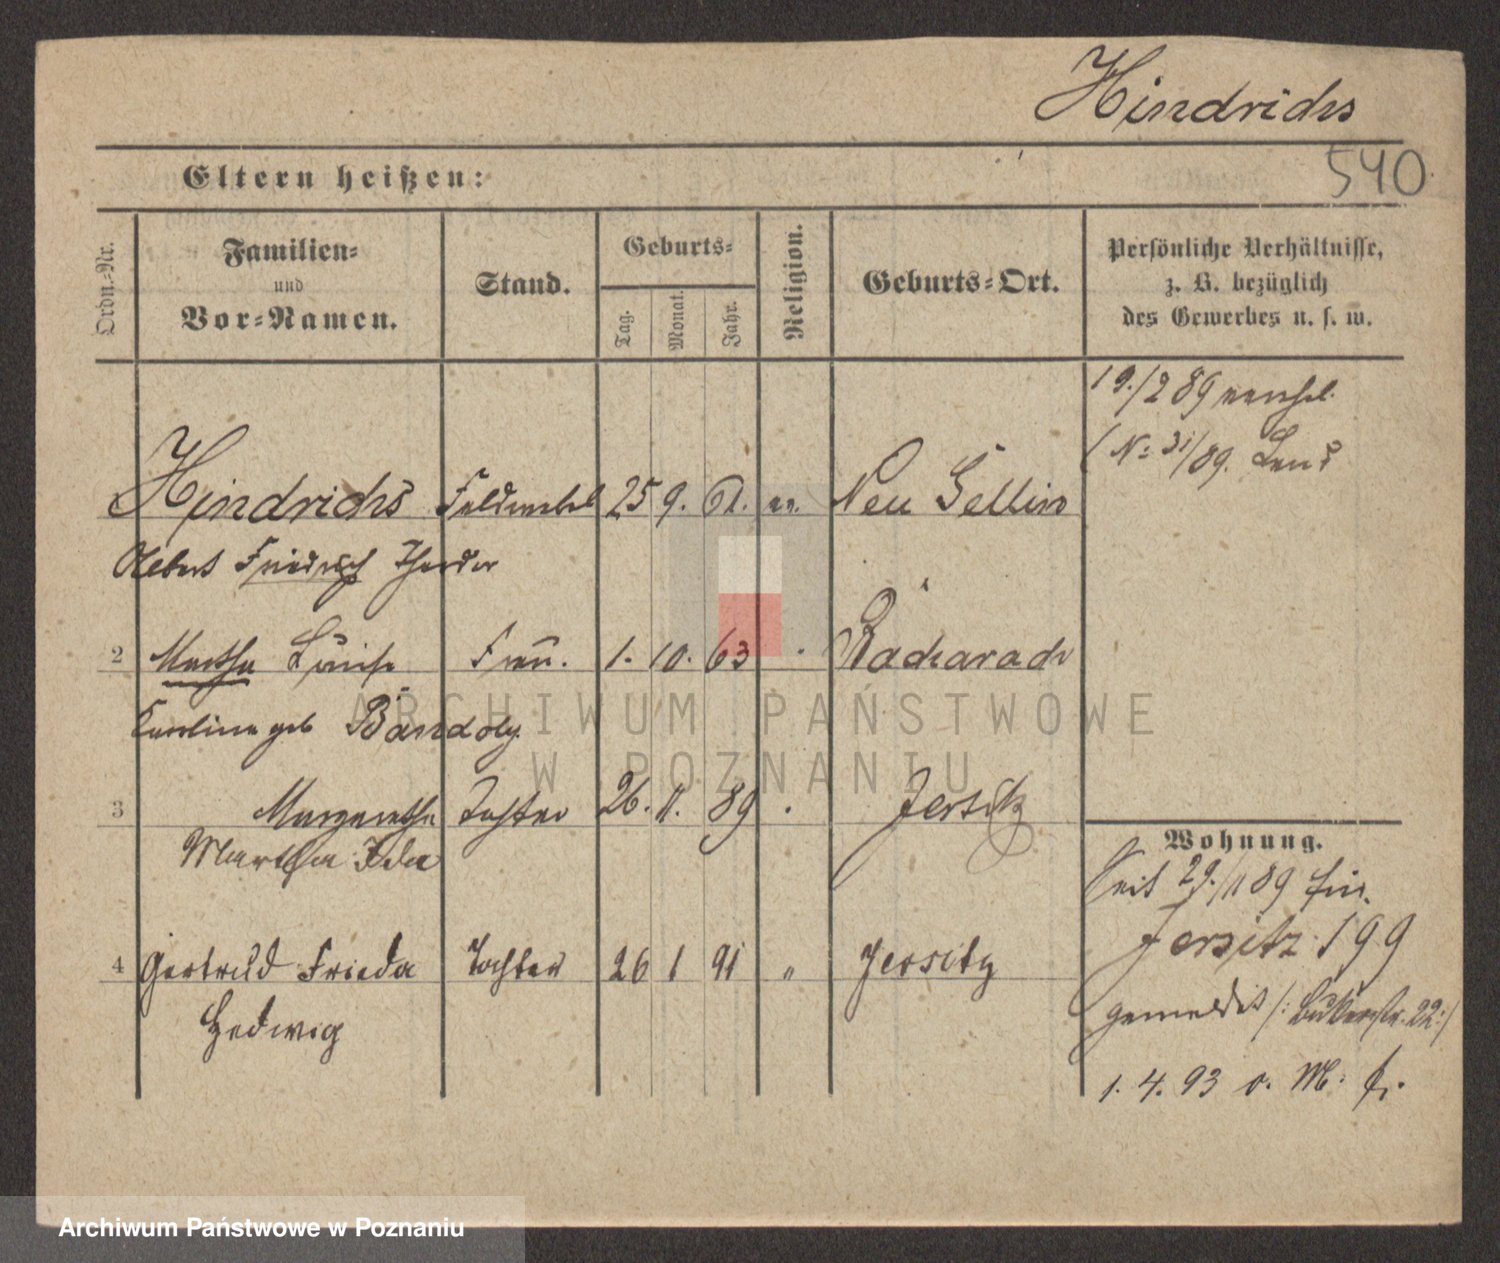 Hindrichs
540
Eltern heißen:
Ordn.-Nr.
Familien-
und
Vor-Namen.
Stand.
Geburts-
Tag.
Monat.
Jahr.
Religion.
Geburts-Ort.
Persönliche Verhältnisse,
z. B. bezüglich
des Gewerbes u. s. w.
19./2 89
(No 31/89.
Hindrichs Feldwebel 25 9. 61. ev. Neu Gellin
Albert Friedrich Theodor
2 Martha Luise Frau. 1. 10. 63 Bacharach
Karoline geb Bandoly
3 Margarethe Tochter 26. 11. 89 Jersitz
Martha Ida
Wohnung.
Seit 29./11 89 hier
Jersitz 199
4 Gertrud Frieda Tochter 26 1 91 " Jersitz
Hedwig
gemeldet /: Bukerstr. 22 :/
1. 4. 93 v. M. h.
ARCHIWUM PAŃSTWOWE
W POZNANIU
Archiwum Państwowe w Poznaniu